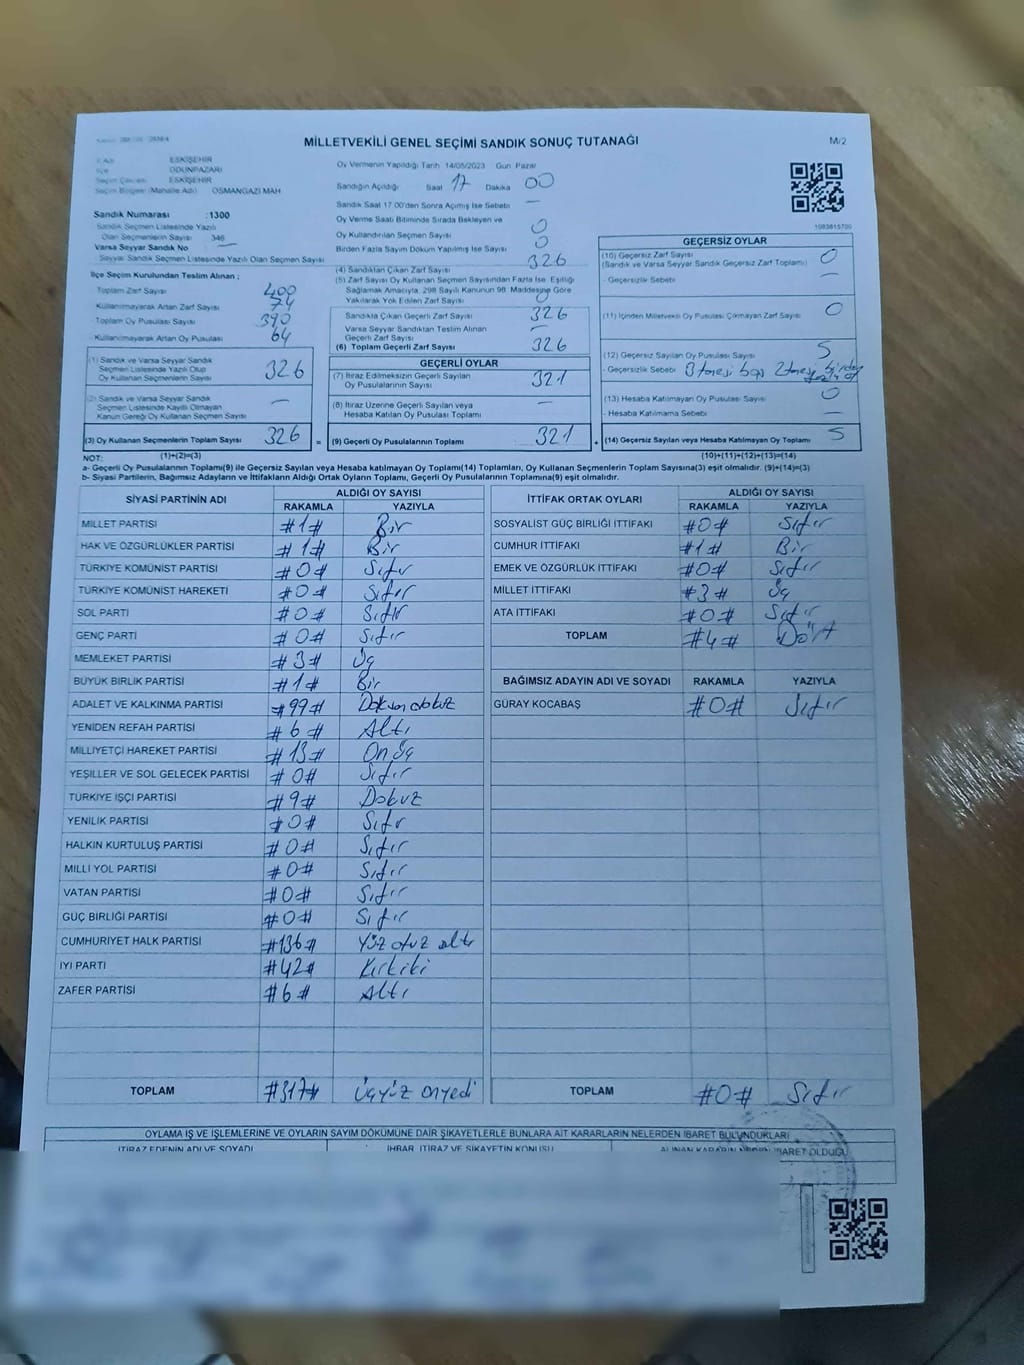 MİLLETVEKİLİ GENEL SEÇİMİ SANDIK SONUÇ TUTANAĞI
M/2
ESKİŞEHİR
ODUNPAZARI
ESKİŞEHİR
Seçim Bölgesi (Mahalle Adı) OSMANGAZİ MAH
Sandık Numarası :1300
Sandık Seçmen Listesinde Yazılı
Olan Seçmenlerin Sayısı 346
Varsa Seyyar Sandık No —
Seyyar Sandık Seçmen Listesinde Yazılı Olan Seçmen Sayısı
İlçe Seçim Kurulundan Teslim Alınan ;
Toplam Zarf Sayısı 400
Kullanılmayarak Artan Zarf Sayısı 74
Toplam Oy Pusulası Sayısı 390
Kullanılmayarak Artan Oy Pusulası 64
(1) Sandık ve Varsa Seyyar Sandık
Seçmen Listesinde Yazılı Olup
Oy Kullanan Seçmenlerin Sayısı 326
(2) Sandık ve Varsa Seyyar Sandık
Seçmen Listesinde Kayıtlı Olmayan
Kanun Gereği Oy Kullanan Seçmen Sayısı —
(3) Oy Kullanan Seçmenlerin Toplam Sayısı 326 =
Oy Vermenin Yapıldığı Tarih 14/05/2023 Gün Pazar
Sandığın Açıldığı Saat 17 Dakika 00
Sandık Saat 17:00'den Sonra Açılmış İse Sebebi —
Oy Verme Saati Bitiminde Sırada Bekleyen ve
Oy Kullandırılan Seçmen Sayısı 0
Birden Fazla Sayım Döküm Yapılmış İse Sayısı 0
(4) Sandıktan Çıkan Zarf Sayısı 326
(5) Zarf Sayısı Oy Kullanan Seçmen Sayısından Fazla İse, Eşitliği
Sağlamak Amacıyla, 298 Sayılı Kanunun 98. Maddesine Göre
Yakılarak Yok Edilen Zarf Sayısı 0
Sandıkta Çıkan Geçerli Zarf Sayısı 326
Varsa Seyyar Sandıktan Teslim Alınan
Geçerli Zarf Sayısı —
(6) Toplam Geçerli Zarf Sayısı 326
GEÇERLİ OYLAR
(7) İtiraz Edilmeksizin Geçerli Sayılan
Oy Pusulalarının Sayısı 321
(8) İtiraz Üzerine Geçerli Sayılan veya
Hesaba Katılan Oy Pusulası Toplamı —
(9) Geçerli Oy Pusulalarının Toplamı 321 +
1083815700
GEÇERSİZ OYLAR
(10) Geçersiz Zarf Sayısı 0
(Sandık ve Varsa Seyyar Sandık Geçersiz Zarf Toplamı)
- Geçersizlik Sebebi —
(11) İçinden Milletvekili Oy Pusulası Çıkmayan Zarf Sayısı 0
(12) Geçersiz Sayılan Oy Pusulası Sayısı 5
- Geçersizlik Sebebi 3 tanesi boş 2 tanesi birden fazla oy
(13) Hesaba Katılmayan Oy Pusulası Sayısı 0
- Hesaba Katılmama Sebebi —
(14) Geçersiz Sayılan veya Hesaba Katılmayan Oy Toplamı 5
NOT: (1)+(2)=(3) (10)+(11)+(12)+(13)=(14)
a- Geçerli Oy Pusulalarının Toplamı(9) ile Geçersiz Sayılan veya Hesaba katılmayan Oy Toplamı(14) Toplamları, Oy Kullanan Seçmenlerin Toplam Sayısına(3) eşit olmalıdır. (9)+(14)=(3)
b- Siyasi Partilerin, Bağımsız Adayların ve İttifakların Aldığı Ortak Oyların Toplamı, Geçerli Oy Pusulalarının Toplamına(9) eşit olmalıdır.
SİYASİ PARTİNİN ADI ALDIĞI OY SAYISI
RAKAMLA YAZIYLA
MİLLET PARTİSİ #1# Bir
HAK VE ÖZGÜRLÜKLER PARTİSİ #1# Bir
TÜRKİYE KOMÜNİST PARTİSİ #0# Sıfır
TÜRKİYE KOMÜNİST HAREKETİ #0# Sıfır
SOL PARTİ #0# Sıfır
GENÇ PARTİ #0# Sıfır
MEMLEKET PARTİSİ #3# Üç
BÜYÜK BİRLİK PARTİSİ #1# Bir
ADALET VE KALKINMA PARTİSİ #99# Doksan dokuz
YENİDEN REFAH PARTİSİ #6# Altı
MİLLİYETÇİ HAREKET PARTİSİ #13# On üç
YEŞİLLER VE SOL GELECEK PARTİSİ #0# Sıfır
TÜRKİYE İŞÇİ PARTİSİ #9# Dokuz
YENİLİK PARTİSİ #0# Sıfır
HALKIN KURTULUŞ PARTİSİ #0# Sıfır
MİLLİ YOL PARTİSİ #0# Sıfır
VATAN PARTİSİ #0# Sıfır
GÜÇ BİRLİĞİ PARTİSİ #0# Sıfır
CUMHURİYET HALK PARTİSİ #136# Yüz otuz altı
İYİ PARTİ #42# Kırkiki
ZAFER PARTİSİ #6# Altı
TOPLAM #317# Üçyüz onyedi
İTTİFAK ORTAK OYLARI ALDIĞI OY SAYISI
RAKAMLA YAZIYLA
SOSYALİST GÜÇ BİRLİĞİ İTTİFAKI #0# Sıfır
CUMHUR İTTİFAKI #1# Bir
EMEK VE ÖZGÜRLÜK İTTİFAKI #0# Sıfır
MİLLET İTTİFAKI #3# Üç
ATA İTTİFAKI #0# Sıfır
TOPLAM #4# Dört
BAĞIMSIZ ADAYIN ADI VE SOYADI RAKAMLA YAZIYLA
GÜRAY KOCABAŞ #0# Sıfır
TOPLAM #0# Sıfır
OYLAMA İŞ VE İŞLEMLERİNE VE OYLARIN SAYIM DÖKÜMÜNE DAİR ŞİKAYETLERLE BUNLARA AİT KARARLARIN NELERDEN İBARET BULUNDUKLARI
İTİRAZ EDENİN ADI VE SOYADI İHBAR İTİRAZ VE ŞİKAYETİN KONUSU ALINAN KARARIN NEDEN İBARET OLDUĞU